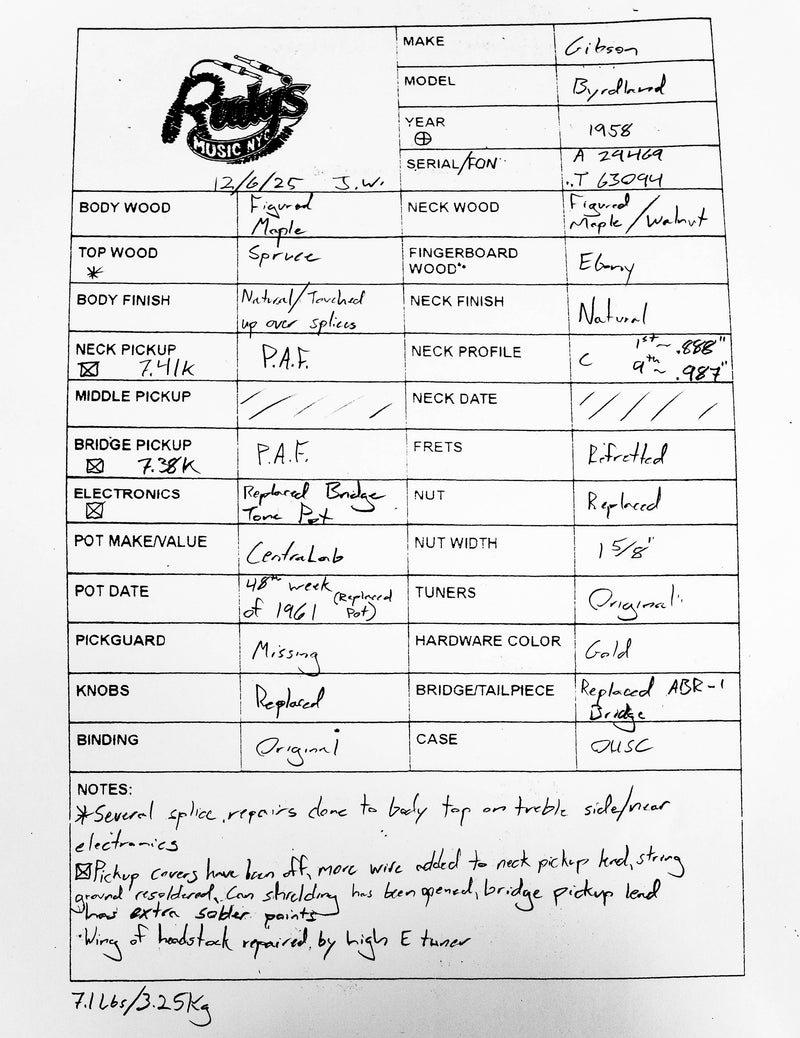 Rudy's
MUSIC NYC
12/6/25 J.W.
MAKE Gibson
MODEL Byrdland
YEAR 1958
⊕
SERIAL/FON A 29469
T 63094
BODY WOOD Figured
Maple
NECK WOOD Figured
Maple/Walnut
TOP WOOD Spruce
*
FINGERBOARD
WOOD Ebony
BODY FINISH Natural/Touched
up over splices
NECK FINISH Natural
NECK PICKUP P.A.F.
☒ 7.41K
NECK PROFILE C 1st ~ .888"
9th ~ .987"
MIDDLE PICKUP / / / / /
NECK DATE / / / / /
BRIDGE PICKUP P.A.F.
☒ 7.38K
FRETS Refretted
ELECTRONICS Replaced Bridge
☒ Tone Pot
NUT Replaced
POT MAKE/VALUE CentraLab
NUT WIDTH 1 5/8"
POT DATE 48th week
of 1961 (Replaced
Pot)
TUNERS Original
PICKGUARD Missing
HARDWARE COLOR Gold
KNOBS Replaced
BRIDGE/TAILPIECE Replaced ABR-1
Bridge
BINDING Original
CASE OHSC
NOTES:
*Several splice repairs done to body top on treble side/near
electronics
☒Pickup covers have been off, more wire added to neck pickup lead, string
ground resoldered, Can shielding has been opened, bridge pickup lead
has extra solder points
·Wing of headstock repaired by high E tuner
7.1Lbs/3.25Kg